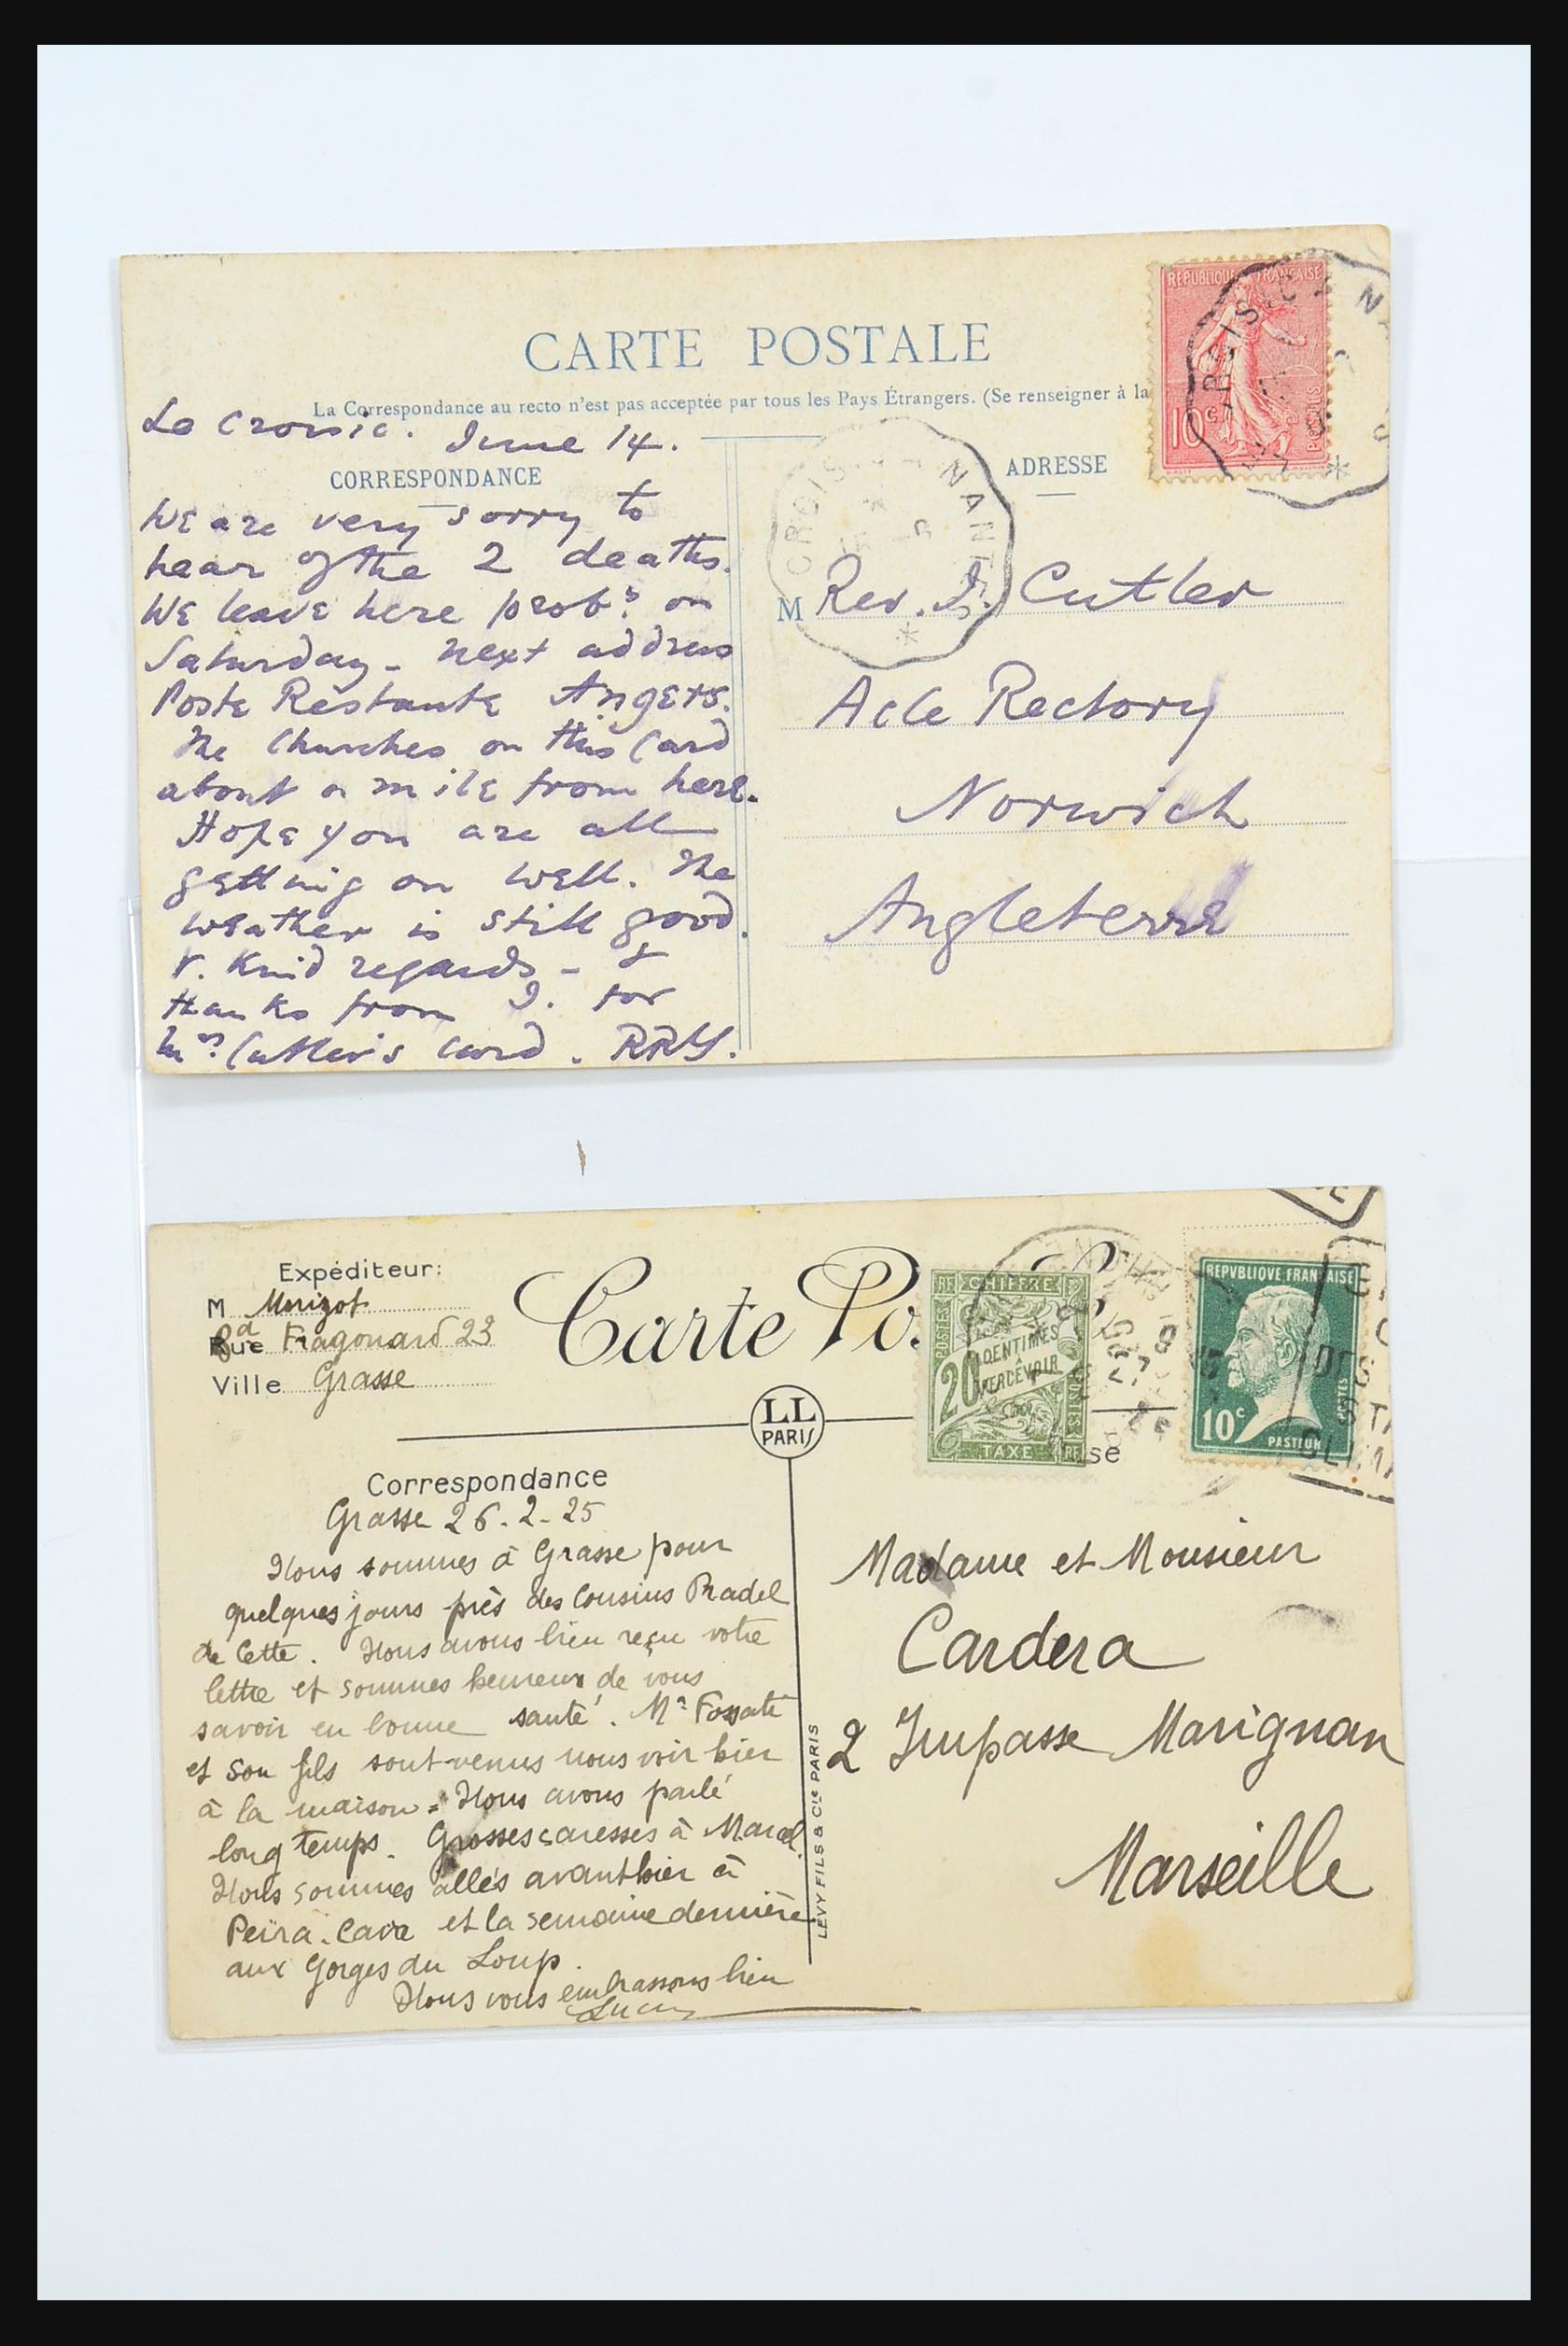 CARTE POSTALE
La Correspondance au recto n'est pas acceptée par tous les Pays Étrangers. (Se renseigner à la
Le Croisic. June 14.
CORRESPONDANCE
We are very sorry to
hear of the 2 deaths.
We leave here prob? on
Saturday - next address
Poste Restante Angers.
The Churches on this Card
about a mile from here.
Hope you are all
getting on well. The
weather is still good.
V. Kind regards - &
thanks from I. for
Mrs. Cutler's card. RRY.
ADRESSE
M Rev. I. Cutler
Acle Rectory
Norwich
Angleterre
REPUBLIQUE FRANÇAISE
10c
POSTES
CROISIC A NANTES
Expéditeur:
M Morizot
Bd Rue Fragonard 23
Ville Grasse
Carte Po
LL
PARIS
RF CHIFFRE
POSTES
20 CENTIMES
A PERCEVOIR
POSTES
TAXE RF
REPVBLIQVE FRANÇAISE
10c
POSTES
PASTEUR
se
Correspondance
Grasse 26-2-25
Nous sommes à Grasse pour
quelques jours près des Cousins Pradel
de Cette. Nous avons bien reçu votre
lettre et sommes heureux de vous
savoir en bonne santé. Mr Fossati
et son fils sont venus nous voir hier
à la maison = Nous avons parlé
longtemps. Grosses caresses à Marcel.
Nous sommes allés avant hier à
Peïra-Cava et la semaine dernière
aux Gorges du Loup.
Nous vous embrassons bien
LÉVY FILS & Cie PARIS
Madame et Monsieur
Cardera
2 Impasse Marignan
Marseille